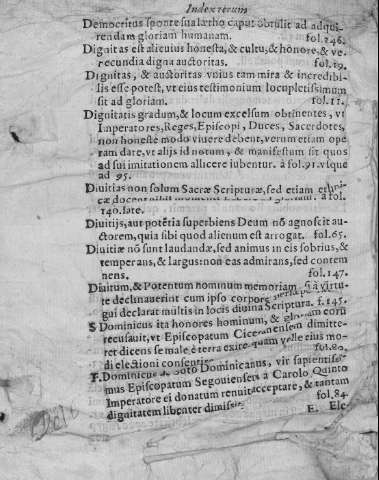 Index rerum
Democritus sponte sua lætho caput obtulit ad adqui-
rendam gloriam humanam. fol.246.
Dignitas est alicuius honesta, & cultu, & honore, & ve-
recundia digna auctoritas. fol.19.
Dignitas, & auctoritas vnius tam mira & incredibi-
lis esse potest, vt eius testimonium locupletissimum
sit ad gloriam. fol.11.
Dignitatis gradum, & locum excelsum obtinentes, vt
Imperatores, Reges, Episcopi, Duces, Sacerdotes,
non honeste modo viuere debent, verum etiam ope-
ram dare, vt alijs id notum, & manifestum sit quos
ad sui imitationem allicere iubentur. à fol.91.vsque
ad 95.
Diuitias non solum Sacræ Scripturæ, sed etiam
à fol.
140. late.
Diuitijs, aut potẽtia superbiens Deum nõ agnoscit au-
ctorem, quia sibi quod alienum est arrogat. fol.65.
Diuitiæ nõ sunt laudandæ, sed animus in eis sobrius, &
temperans, & largus: non eas admirans, sed contem
nens. fol.147.
Diuitum, & Potentum nominum memoriam, si à virtu-
te declinauerint cum ipso corpore
gui declarat multis in locis diuina Scriptura. f.145.
S Dominicus ita honores hominum, & gloriam
recusauit, vt Episcopatum dimitte-
ret dicens se male è terra exire quam velle eius mo-
di electioni consentire fol.80.
F. Dominicus de Soto Dominicanus, vir sapientissi-
mus Episcopatum Segouiensem à Carolo Quinto
Imperatore ei donatum renuit acceptare, & tantam
dignitatem libenter dimisit fol.84.
E. Ele